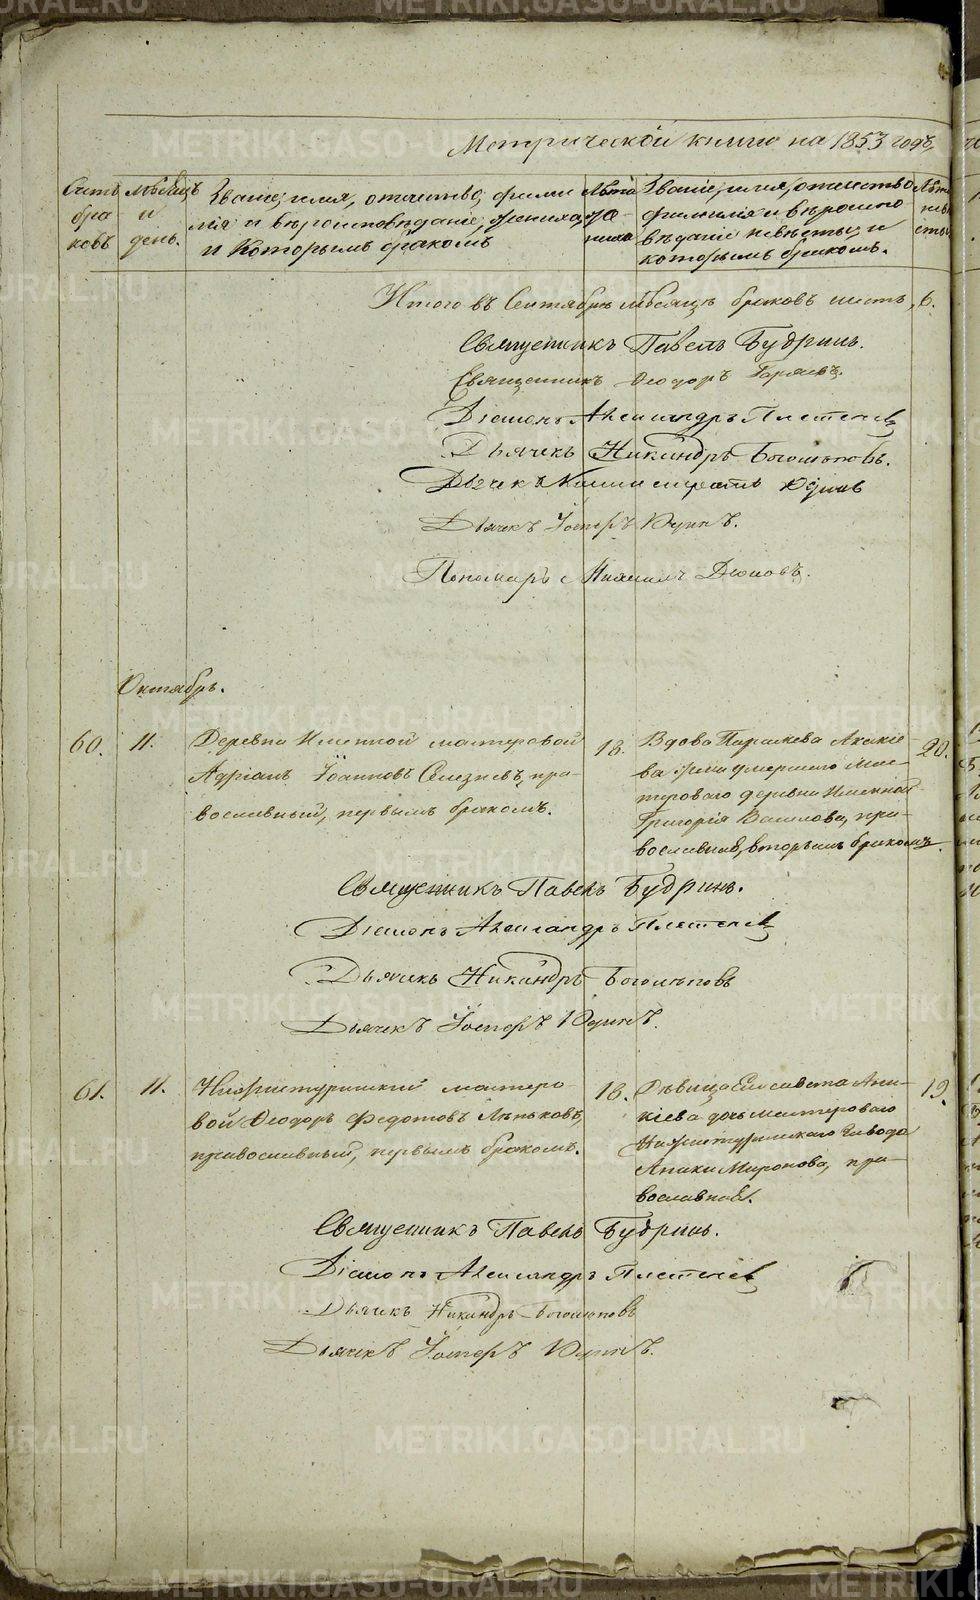 Метрической книги на 1853 годъ
Счетъ браковъ
Мѣсяцъ и день.
Званіе, имя, отчество, фамилія и вѣроисповѣданіе жениха, и которымъ бракомъ
Лѣта жениха
Званіе, имя, отчество, фамилія и вѣроисповѣданіе невѣсты, и которымъ бракомъ.
Лѣта невѣсты
Итого въ Сентябрѣ мѣсяцѣ браковъ шесть, 6.
Священникъ Павелъ Будринъ.
Священникъ Ѳеодоръ
Діаконъ Александръ Плетеневъ
Дьячекъ Никандръ Боголѣповъ.
Дьячекъ Юдинъ
Дьячекъ
Пономарь Михаилъ
Октябрь.
60. 11.
Деревни Именной мастеровой
Адріанъ Іоанновъ Селезневъ, пра-
вославный, первымъ бракомъ.
18.
Вдова Параскева Акакіе-
ва жена умершаго мас-
тероваго деревни Именной
Григорія Вавилова, пра-
вославнаѧ, вторымъ бракомъ.
20.
Священникъ Павелъ Будринъ.
Діаконъ Александръ Плетеневъ
Дьячекъ Никандръ Боголѣповъ
Дьячекъ
61. 11.
Нижнетуринскій мастеро-
вой Ѳеодоръ Федотовъ
православный, первымъ бракомъ.
18.
Дѣвица Елисавета Ани-
кіева дочь мастероваго
Нижнетуринскаго Завода
Аники Миронова, пра-
вославная.
19.
Священникъ Павелъ Будринъ.
Діаконъ Александръ Плетеневъ
Дьячекъ Никандръ Боголѣповъ
Дьячекъ
METRIKI.GASO-URAL.RU